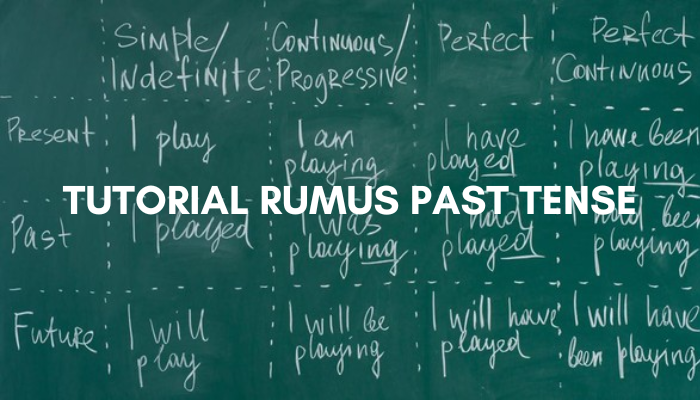 Simple/ Continuous/ Perfect Perfect
Indefinite Progressive Continuous
Present I play I am I have I have been
playing played playing
TUTORIAL RUMUS PAST TENSE
Past I played I was I had I had been
playing played playing
Future I will I will be I will have I will have
play playing played been playing